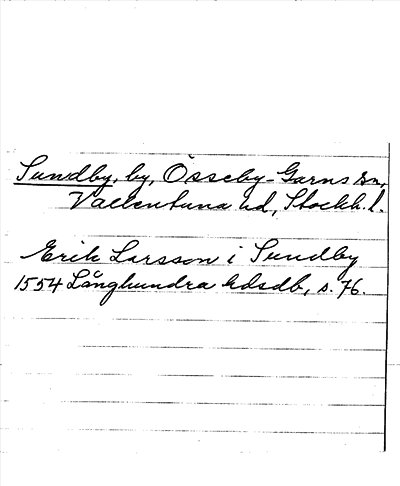 Sundby, by, Össeby-Garns sn,
Vallentuna hd, Stockh. l.
Erik Larsson i Sundby
1554 Långhundra hdsdb, s. 76.